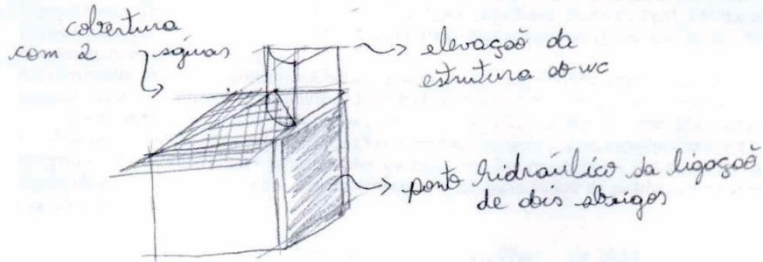 cobertura
com 2 águas
elevação da
estrutura do wc
ponto hidráulico da ligação
de dois abrigos